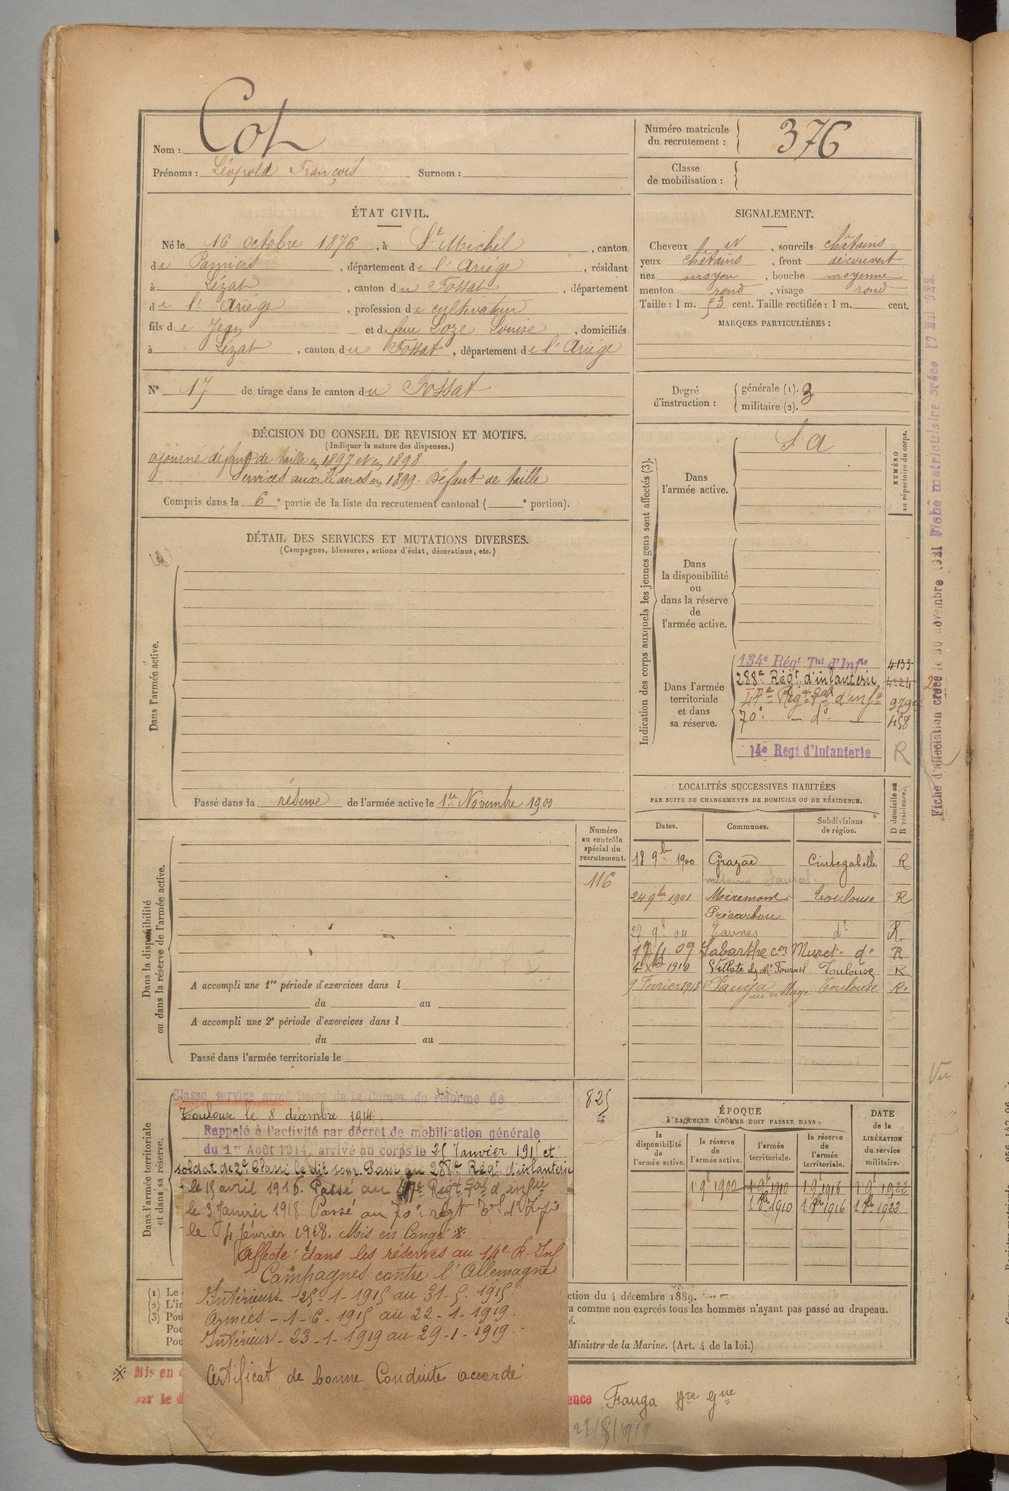 Nom : Cot
Prénoms : Léopold François Surnom :
Numéro matricule du recrutement : 376
Classe de mobilisation :
ÉTAT CIVIL.
Né le 16 octobre 1876, à St Michel, canton
de Pamiers, département de l'Ariége, résidant
à Lézat, canton du Fossat, département
de l'Ariége, profession de cultivateur
fils de Jean et de feue Loze Louise, domiciliés
à Lézat, canton du Fossat, département de l'Ariége
N° 17 de tirage dans le canton du Fossat
SIGNALEMENT.
Cheveux et, sourcils châtains
yeux châtains, front découvert
nez moyen, bouche moyenne
menton rond, visage rond
Taille : 1 m. 53 cent. Taille rectifiée : 1 m. cent.
MARQUES PARTICULIÈRES :
Degré d'instruction : générale (1). 3
militaire (2).
DÉCISION DU CONSEIL DE REVISION ET MOTIFS.
(Indiquer la nature des dispenses.)
ajourné défaut de taille en 1897 et en 1898
Services auxiliaires en 1899. Défaut de taille
Compris dans la 6e partie de la liste du recrutement cantonal ( e portion).
DÉTAIL DES SERVICES ET MUTATIONS DIVERSES.
(Campagnes, blessures, actions d'éclat, décorations, etc.)
Dans l'armée active.
Passé dans la réserve de l'armée active le 1er Novembre 1900
Numéro au contrôle spécial du recrutement.
116
Dans la disponibilité ou dans la réserve de l'armée active.
A accompli une 1re période d'exercices dans l
du au
A accompli une 2e période d'exercices dans l
du au
Passé dans l'armée territoriale le
Indication des corps auxquels les jeunes gens sont affectés (3).
NUMÉRO au répertoire du corps.
Dans l'armée active.
S A
Dans la disponibilité ou dans la réserve de l'armée active.
Dans l'armée territoriale et dans sa réserve.
134e Régt Tal d'Infie 4133
288e Régt d'infanterie
70e d° 458
14e Regt d'Infanterie R
LOCALITÉS SUCCESSIVES HABITÉES
PAR SUITE DE CHANGEMENTS DE DOMICILE OU DE RÉSIDENCE.
Dates. Communes. Subdivisions de région. D domicile ou R résidence.
18 9bre 1900 Grazac Cintegabelle R
24 9bre 1901 Miremont Toulouse R
27 9bre 04 d° R
Labarthe con Muret d° R
1910 Toulouse R
9 Février 1915 Fauga au village Toulouse R
Dans l'armée territoriale et dans sa réserve.
825
Classé service armé de réforme de
Toulouse le 8 décembre 1914.
Rappelé à l'activité par décret de mobilisation générale
du 1er Août 1914, arrivé au corps le 25 Janvier 1915 et
soldat de 2e Classe le dit jour. Passé au 288e Régt d'infanterie
le 15 avril 1916. Passé au Régt d'infie
le 3 Janvier 1918 Passé au 70e régt d'Infie
le 4 février 1918. Mis en Congé ※
Affecté dans les réserves au 14e R. Inf
Campagnes contre l'Allemagne
Intérieur - 25-1-1915 au 31-5-1915
Armées - 1-6-1915 au 22-1-1919.
Intérieur - 23-1-1919 au 29-1-1919.
Certificat de bonne Conduite accordé
ÉPOQUE
A LAQUELLE L'HOMME DOIT PASSER DANS :
la disponibilité de l'armée active. la réserve de l'armée active. l'armée territoriale. la réserve de l'armée territoriale.
DATE de la LIBÉRATION du service militaire.
1 9bre 1900 1 9bre 1910 1 9bre 1916 1 9bre 1922
1 1910 1 1916 1 1922
(1) Le
(2) L'in
(3) Pou
Pou
Pou
ction du 4 décembre 1889.
a comme non exercés tous les hommes n'ayant pas passé au drapeau.
Ministre de la Marine. (Art. 4 de la loi.)
※ Mis en
par le d
ence Fauga Hte Gne
Fiche d'affectation créée le 30 novembre 1921 Fiche matriculaire créée
Vu